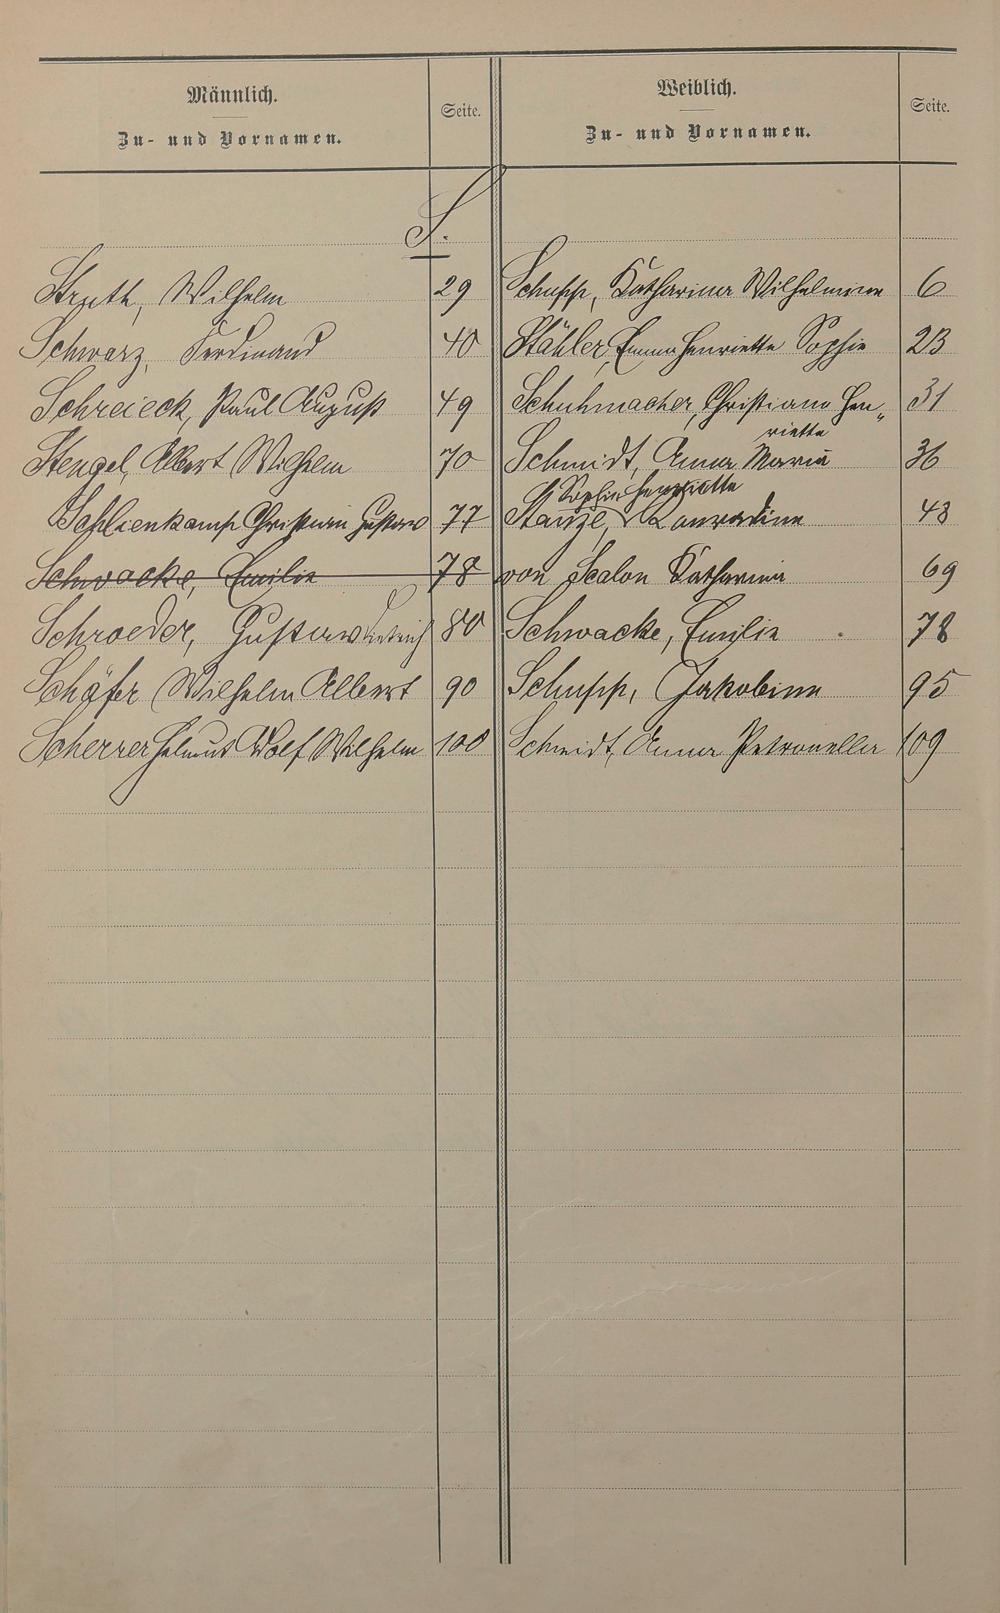 Männlich. Seite. Weiblich. Seite.
Zu- und Vornamen. Zu- und Vornamen.
S.
Struth, Wilhelm 29 Schupp, Katharina Wilhelmine 6
Schwarz, Ferdinand 40 Stähler, Emma Henriette Sophie 23
Schreieck, Paul August 49 Schuhmacher, Christiane Hen„ 31
riette
Stengel, Albert Wilhelm 70 Schmidt, Anna Maria 36
Sophie Henriette
Schlienkamp Christian Gustav 77 Stanze, Konradine 48
Schwacke, Emilie 78 von Scalon Katharina 69
Schroeder, Gustav Dietrich 80 Schwacke, Emilie 78
Schäfer Wilhelm Albert 90 Schupp, Jakobine 95
Scherrer Helmut Wolf Wilhelm 100 Schmidt, Anna Petronella 109